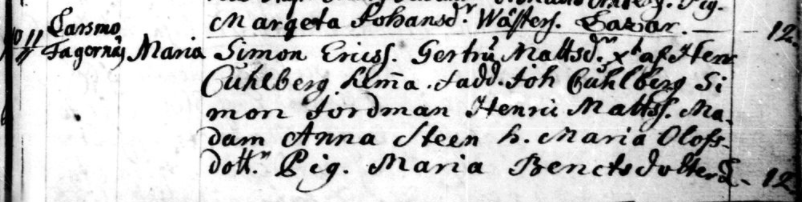 Margeta Johansd.r Wästers. Lazar. 12.
Larsmo
Fagernäs Maria Simon Ericss. Gertru Mattsd.r x.t af Hen
Cuhlberg hem̄a. Fadd. Joh Cuhlberg Si
mon Jordman Henric Mattss. Ma-
dam Anna Steen h. Maria Olofs-
dott.r Pig. Maria Benctsdotter 12